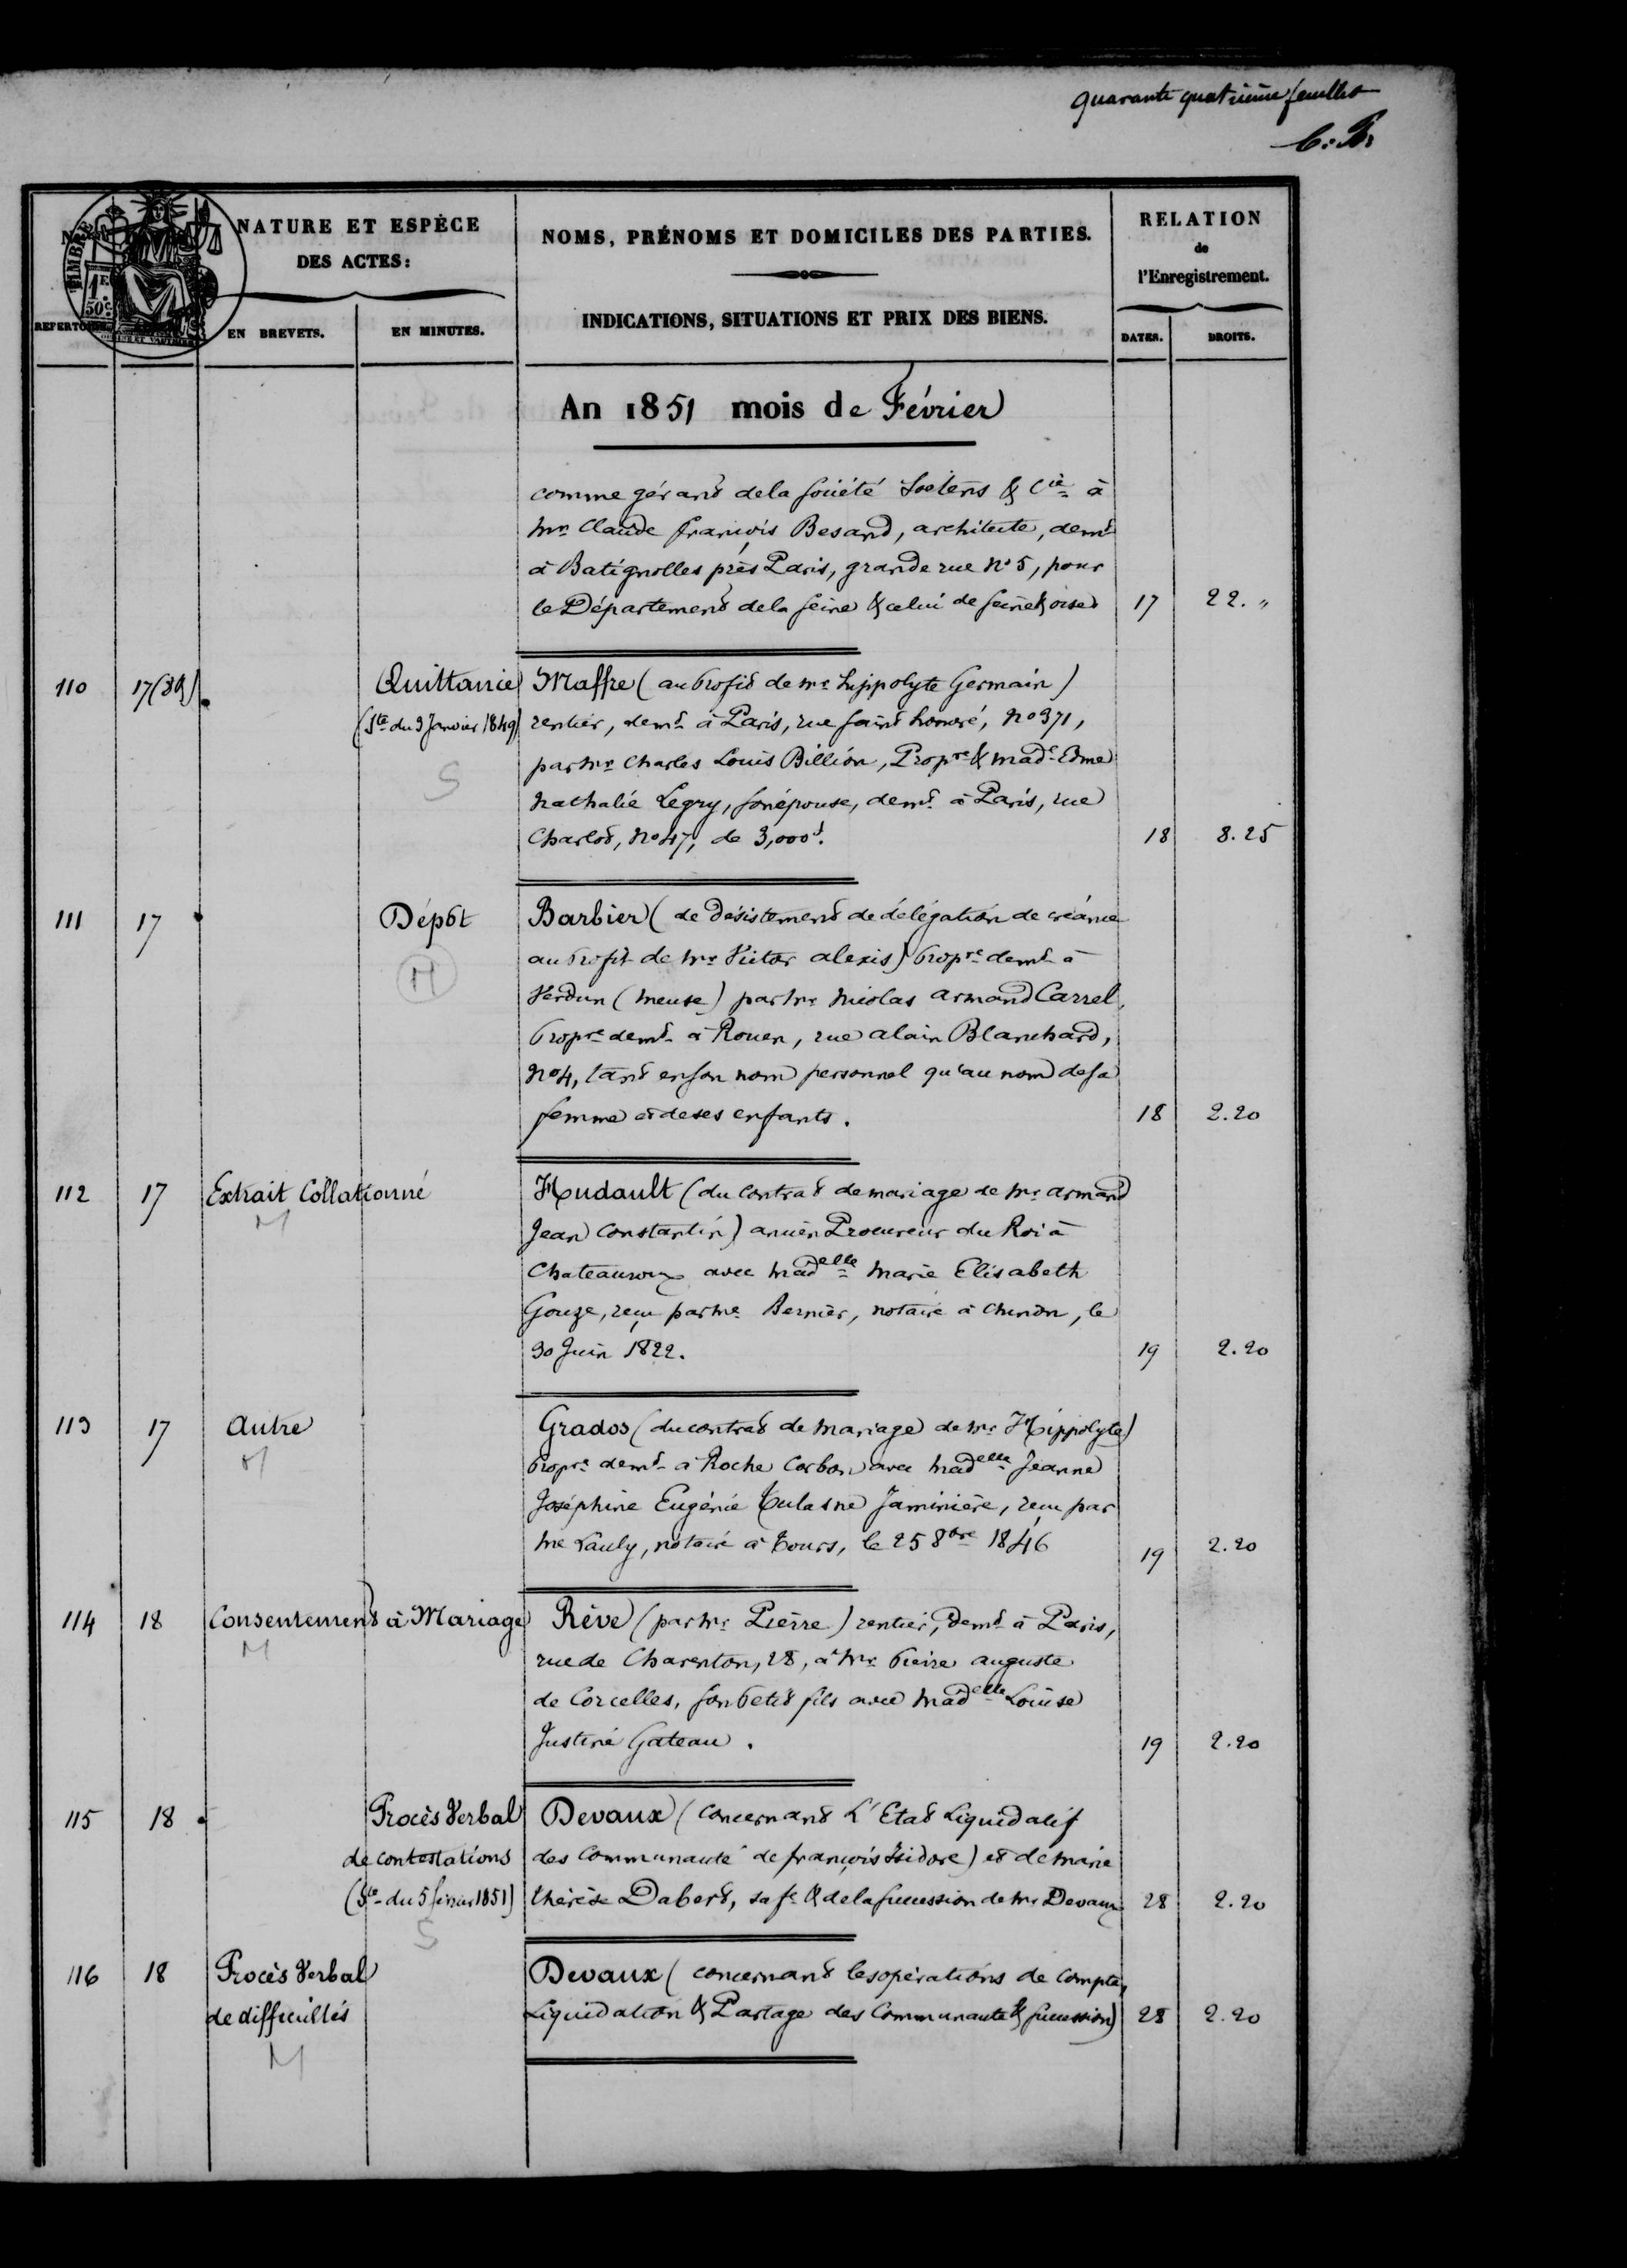 quarante quatrième feuillet
TIMBRE
1F.
50c
REPERTOIRE
NATURE ET ESPÈCE
DES ACTES:
EN BREVETS.
EN MINUTES.
NOMS, PRÉNOMS ET DOMICILES DES PARTIES.
INDICATIONS, SITUATIONS ET PRIX DES BIENS.
RELATION
de
l'Enregistrement.
DATES.
DROITS.
An 1851 mois de Février
comme gérant de la société & Cie à
Mr Claude françois Besand, architecte, demt
à Batignolles près Paris, grande rue No 5, pour
le Département de la Seine & celui de Seine & oise 17 22. "
110 17 Quittance Maffre (au profit de Mr hippolyte Germain)
(Ste du 9 Janvier 1849) rentier, demt à Paris, rue saint honoré, No 371,
par Mr Charles Louis Billion, Propre & Made Edme
S
Nathalie Legry, son épouse, demt à Paris, rue
Charlot, No 47, de 3,000f. 18 8.25
111 17 Dépôt Barbier (de désistement de délégation de créance
au profit de Mr Victor alexis) propre demt à
H
Verdun (Meuse) par Mr Nicolas armand Carrel,
propre demt à Rouen, rue alain Blanchard,
No 4, tant en son nom personnel qu'au nom de sa
femme et de ses enfants. 18 2.20
112 17 Extrait Collationné Hudault (du contrat de mariage de Mr armand
M
Jean Constantin) ancien Procureur du Roi à
Chateauroux avec Madelle Marie Elisabeth
Gouze, reçu par Me Bernier, notaire à Chinon, le
30 Juin 1822. 19 2.20
113 17 autre Grados (du contrat de mariage de Mr Hippolyte)
M
propre demt à Roche Corbon avec Madelle Jeanne
Joséphine Eugénie Tulasne Jaminière, reçu par
Me notaire à Tours, le 25 8bre 1846 19 2.20
114 18 Consentement à Mariage Rêve (par Mr Pierre) rentier, demt à Paris,
M
rue de Charenton, 28, à Mr Pierre auguste
de Corcelles, son petit fils avec Madelle Louise
Justine Gateau. 19 2.20
115 18 Procès Verbal Devaux (concernant l'Etat Liquidatif
de contestations des Communauté de françois Isidore) et de Marie
(Ste du 5 février 1851) thérèse Dabert, sa fe & de la succession de Mr Devaux 28 2.20
S
116 18 Procès Verbal Devaux (concernant les opérations de compte,
de difficultés Liquidation & Partage des Communauté & succession) 28 2.20
M